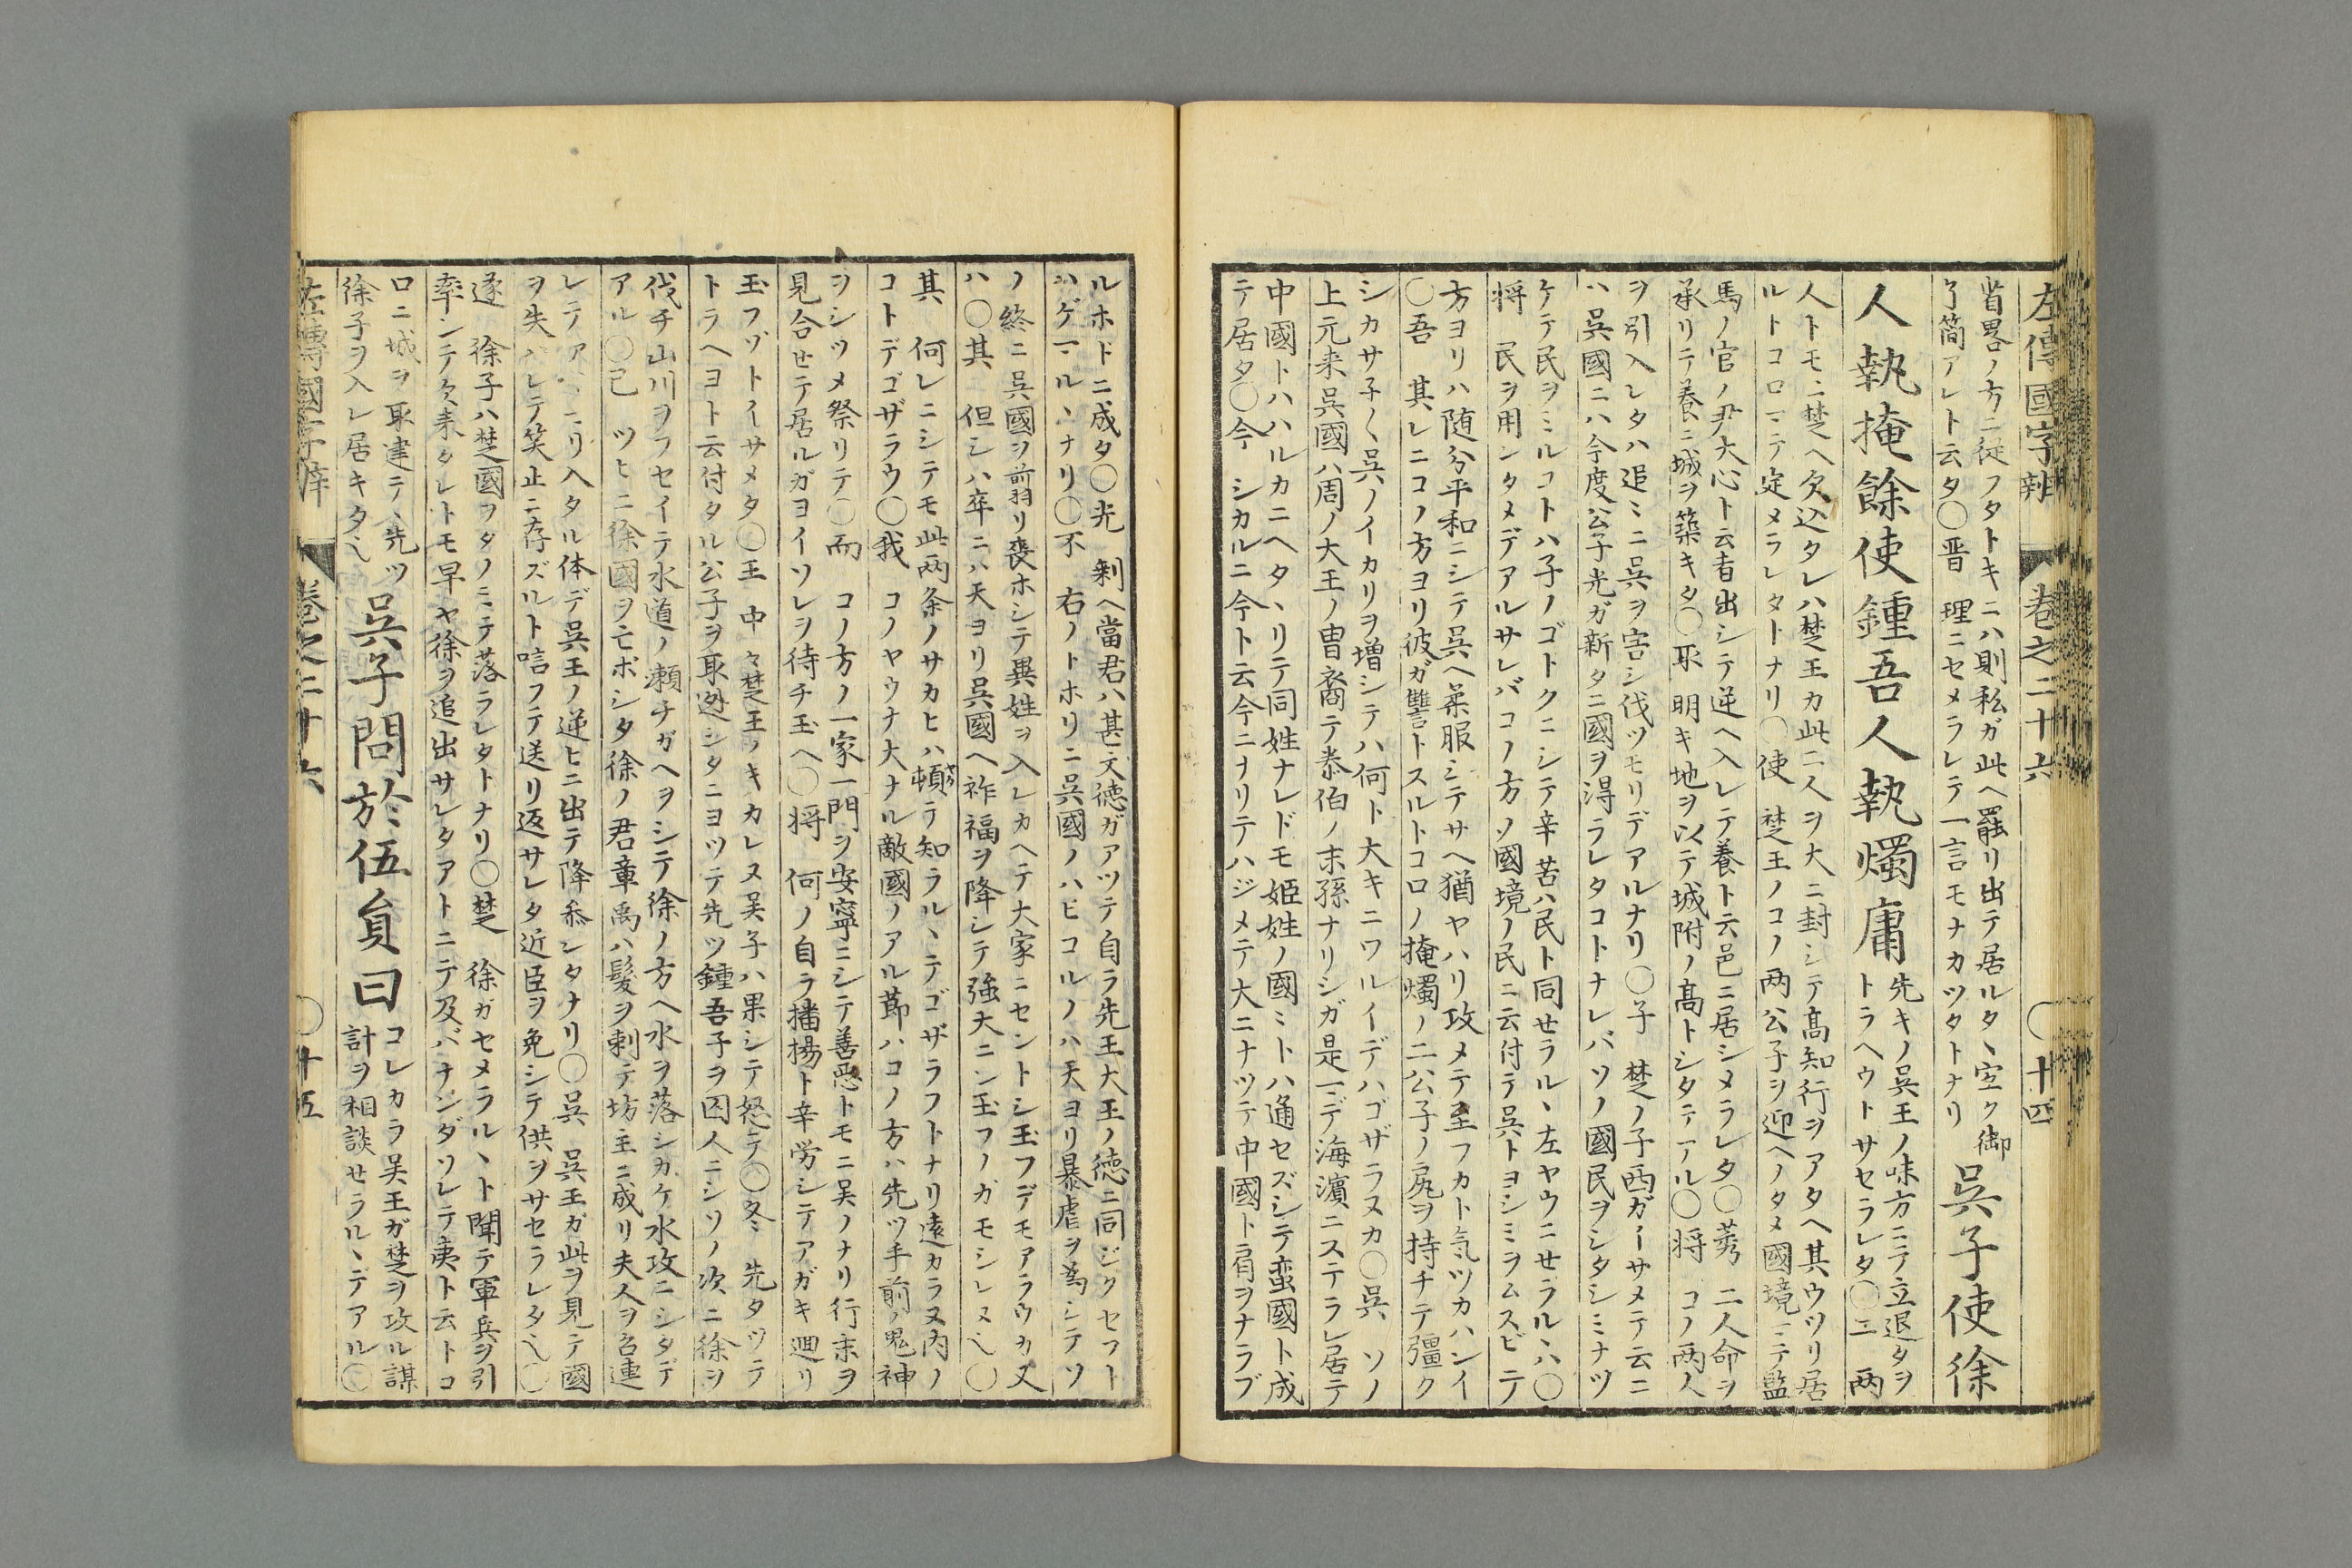 左傳國字辨 巻之二十六 〇十四
省畧ノ方ニ従フタトキニハ則私ガ此ヘ罷リ出テ居ルタヽ宓ク御
了簡アレト云タ〇晋 理ニセメラレテ一言モナカツタトナリ
吳子使徐
人執掩餘使鍾吾人執燭庸
先キノ吳王ノ味方ニテ立退タヲ
トラヘウトサセラレタ〇二 两
人トモニ楚ヘ欠込タレハ楚王カ此二人ヲ大ニ封シテ髙知行ヲアタヘ其ウツリ居
ルトコロマテ定メラレタトナリ〇使 楚王ノコノ两公子ヲ迎ヘノタメ國境ニテ監
馬ノ官ノ尹大心ト云者出シテ逆ヘ入レテ養ト云邑ニ居シメラレタ〇莠 二人命ヲ
承リテ養ニ城ヲ築キタ〇取 明キ地ヲ以テ城附ノ髙トシタテアル〇将 コノ两人
ヲ引入レタハ追ミニ吳ヲ害シ伐ツモリデアルナリ〇子 楚ノ子西ガイサメテ云ニ
ハ吳國ニハ今度公子光ガ新タニ國ヲ得ラレタコトナレバソノ國民ヲシタシミナツ
ケテ民ヲミルコトハ子ノゴトクニシテ辛苦ハ民ト同せラルヽ左ヤウニせラルヽハ〇
将 民ヲ用ンタメデアルサレバコノ方ソ國境ノ民ニ云付テ吳トヨシミヲムスビテ
方ヨリハ随分平和ニシテ吳ヘ柔服シテサヘ猶ヤハリ攻メテ至フカト気ツカハシイ
〇吾 其レニコノ方ヨリ彼ガ讐トスルトコロノ掩燭ノ二公子ノ尻ヲ持チテ彊ク
シカサ子〱吳ノイカリヲ増シテハ何ト大キニワルイデハゴザラヌカ〇吳 ソノ
上元来吳國ハ周ノ大王ノ曺裔テ泰伯ノ末孫ナリシガ是マデ海濵ニステラレ居テ
中國トハハルカニヘタヽリテ同姓ナレドモ姫姓ノ國ミトハ通せズシテ蛮國ト成
テ居タ〇今 シカルニ今ト云今ニナリテハジメテ大ニナツテ中國ト肩ヲナラブ
ルホドニ成タ〇光 剰ヘ當君ハ甚文徳ガアツテ自ラ先王大王ノ徳ニ同ジクセフト
ハゲマルヽナリ〇不 右ノトホリニ吳國ノハビコルノハ天ヨリ暴虐ヲ爲シテソ
ノ終ニ吳國ヲ前羽リ喪ホシテ異姓ヲ入レカヘテ大家ニセントシ玉フデモアラウカ又
ハ〇其 但シハ卒ニハ天ヨリ吳國ヘ祚福ヲ降シテ強大ニン玉フノガモシレヌヘ〇
其 何レニシテモ此两条ノサカヒハ頓テ知ラルヽテゴザラフトナリ遠カラヌ内ノ
コトデゴザラウ〇我 コノヤウナ大ナル敵國ノアル節ハコノ方ハ先ツ手前ノ鬼神
ヲシツメ祭リテ〇而 コノ方ノ一家一門ヲ安寧ニシテ善悪トモニ吴ノナリ行末ヲ
見合せテ居ルガヨイソレヲ待チ玉ヘ〇将 何ノ自ラ播揚ト辛労シテアガキ廻リ
玉フゾトイサメタ〇王 中々楚王ノキカレヌ吴子ハ果シテ怒テ〇冬 先タツテ
トラヘヨト云付タル公子ヲ取迯シタニヨツテ先ツ鍾吾子ヲ囚人ニシソノ次ニ徐ヲ
伐チ山川ヲフセイテ水道ノ瀬チガヘヲシテ徐ノ方ヘ水ヲ落シカケ水攻ニシタデ
アル〇己 ツヒニ徐國ヲ亡ボシタ徐ノ君章禹ハ髪ヲ剃テ坊主ニ成リ夫人ヲ召連
レテ入タル体デ吳王ノ逆ヒニ出テ降忝シタナリ〇吳 吳王ガ此ヲ見テ國
ヲ失レテ笑止ニ存ズルト唁フテ送リ返サレタ近臣ヲ免シテ供ヲサセラレタヘ〇
遂 徐子ハ楚國ヲタノミテ落ラレタトナリ〇楚 徐ガセメラルヽト聞テ軍兵ヲ引
率ンテ欠来タレトモ早ヤ徐ヲ追出サレタアトニテ及バナンダソレテ夷ト云トコ
ロニ城ヲ取建テヽ先ツ
徐子ヲ入レ居キタヘ
吳子問於伍員曰
コレカラ吴王ガ楚ヲ攻ル謀
計ヲ相談せラルヽデアル〇
左傳國字辨 巻之二十六 〇十五